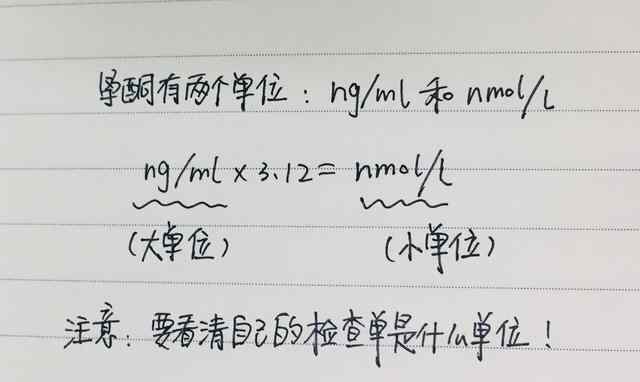 孕酮有两个单位：ng/ml 和 nmol/L
ng/ml × 3.12 = nmol/L
（大单位） （小单位）
注意：要看清自己的检查单是什么单位！